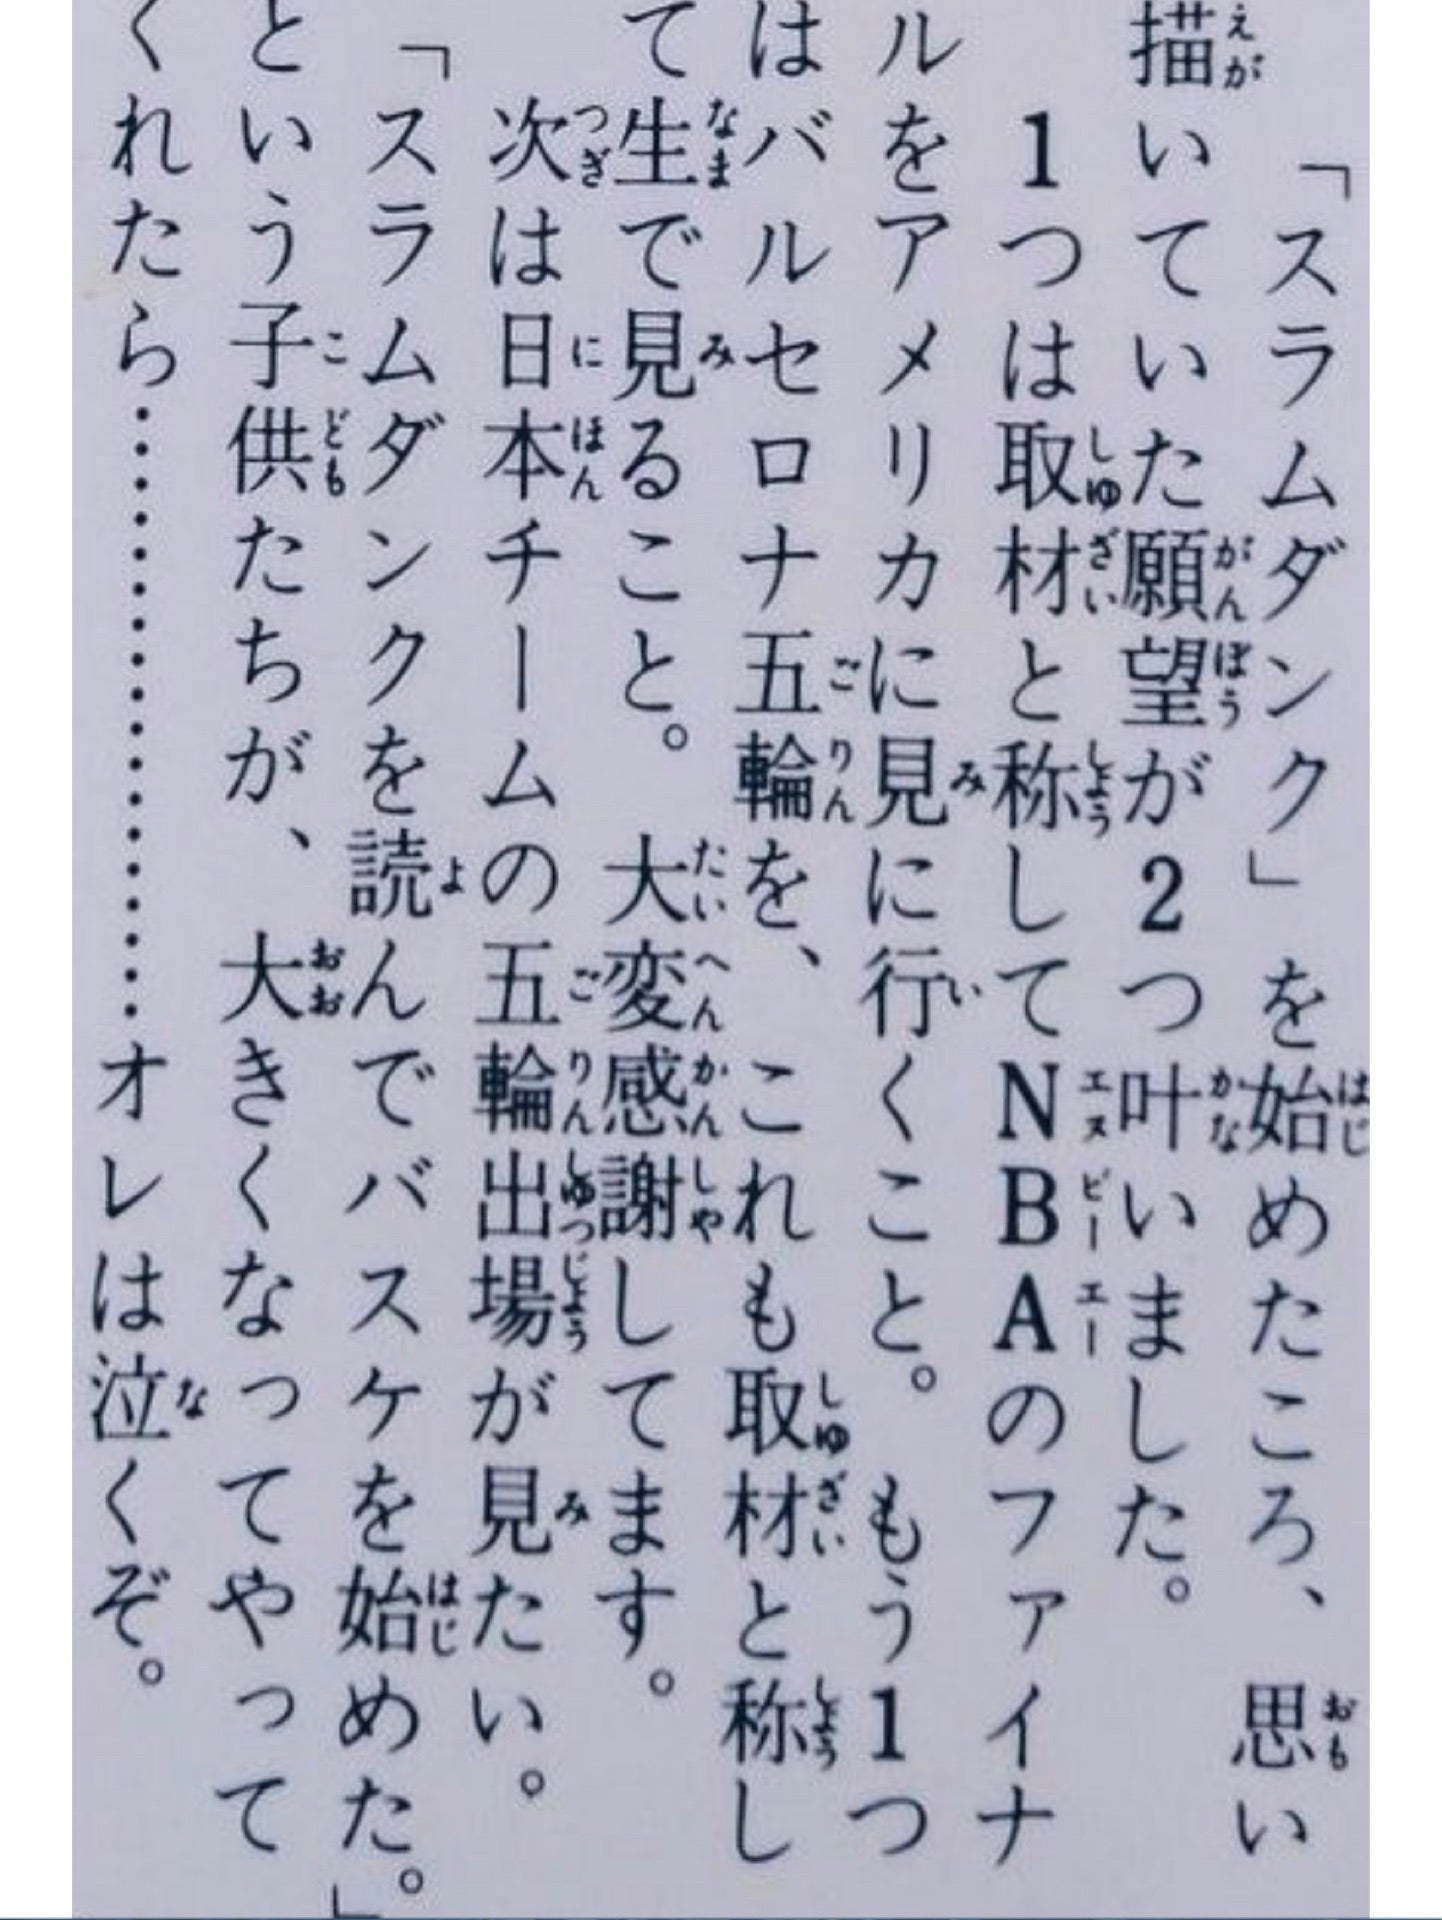 「スラムダンク」を始めたころ、思い
描いていた願望が2つ叶いました。
1つは取材と称してNBAのファイナ
ルをアメリカに見に行くこと。もう1つ
はバルセロナ五輪を、これも取材と称し
て生で見ること。大変感謝してます。
次は日本チームの五輪出場が見たい。
「スラムダンクを読んでバスケを始めた。」
という子供たちが、大きくなってやって
くれたら………………オレは泣くぞ。